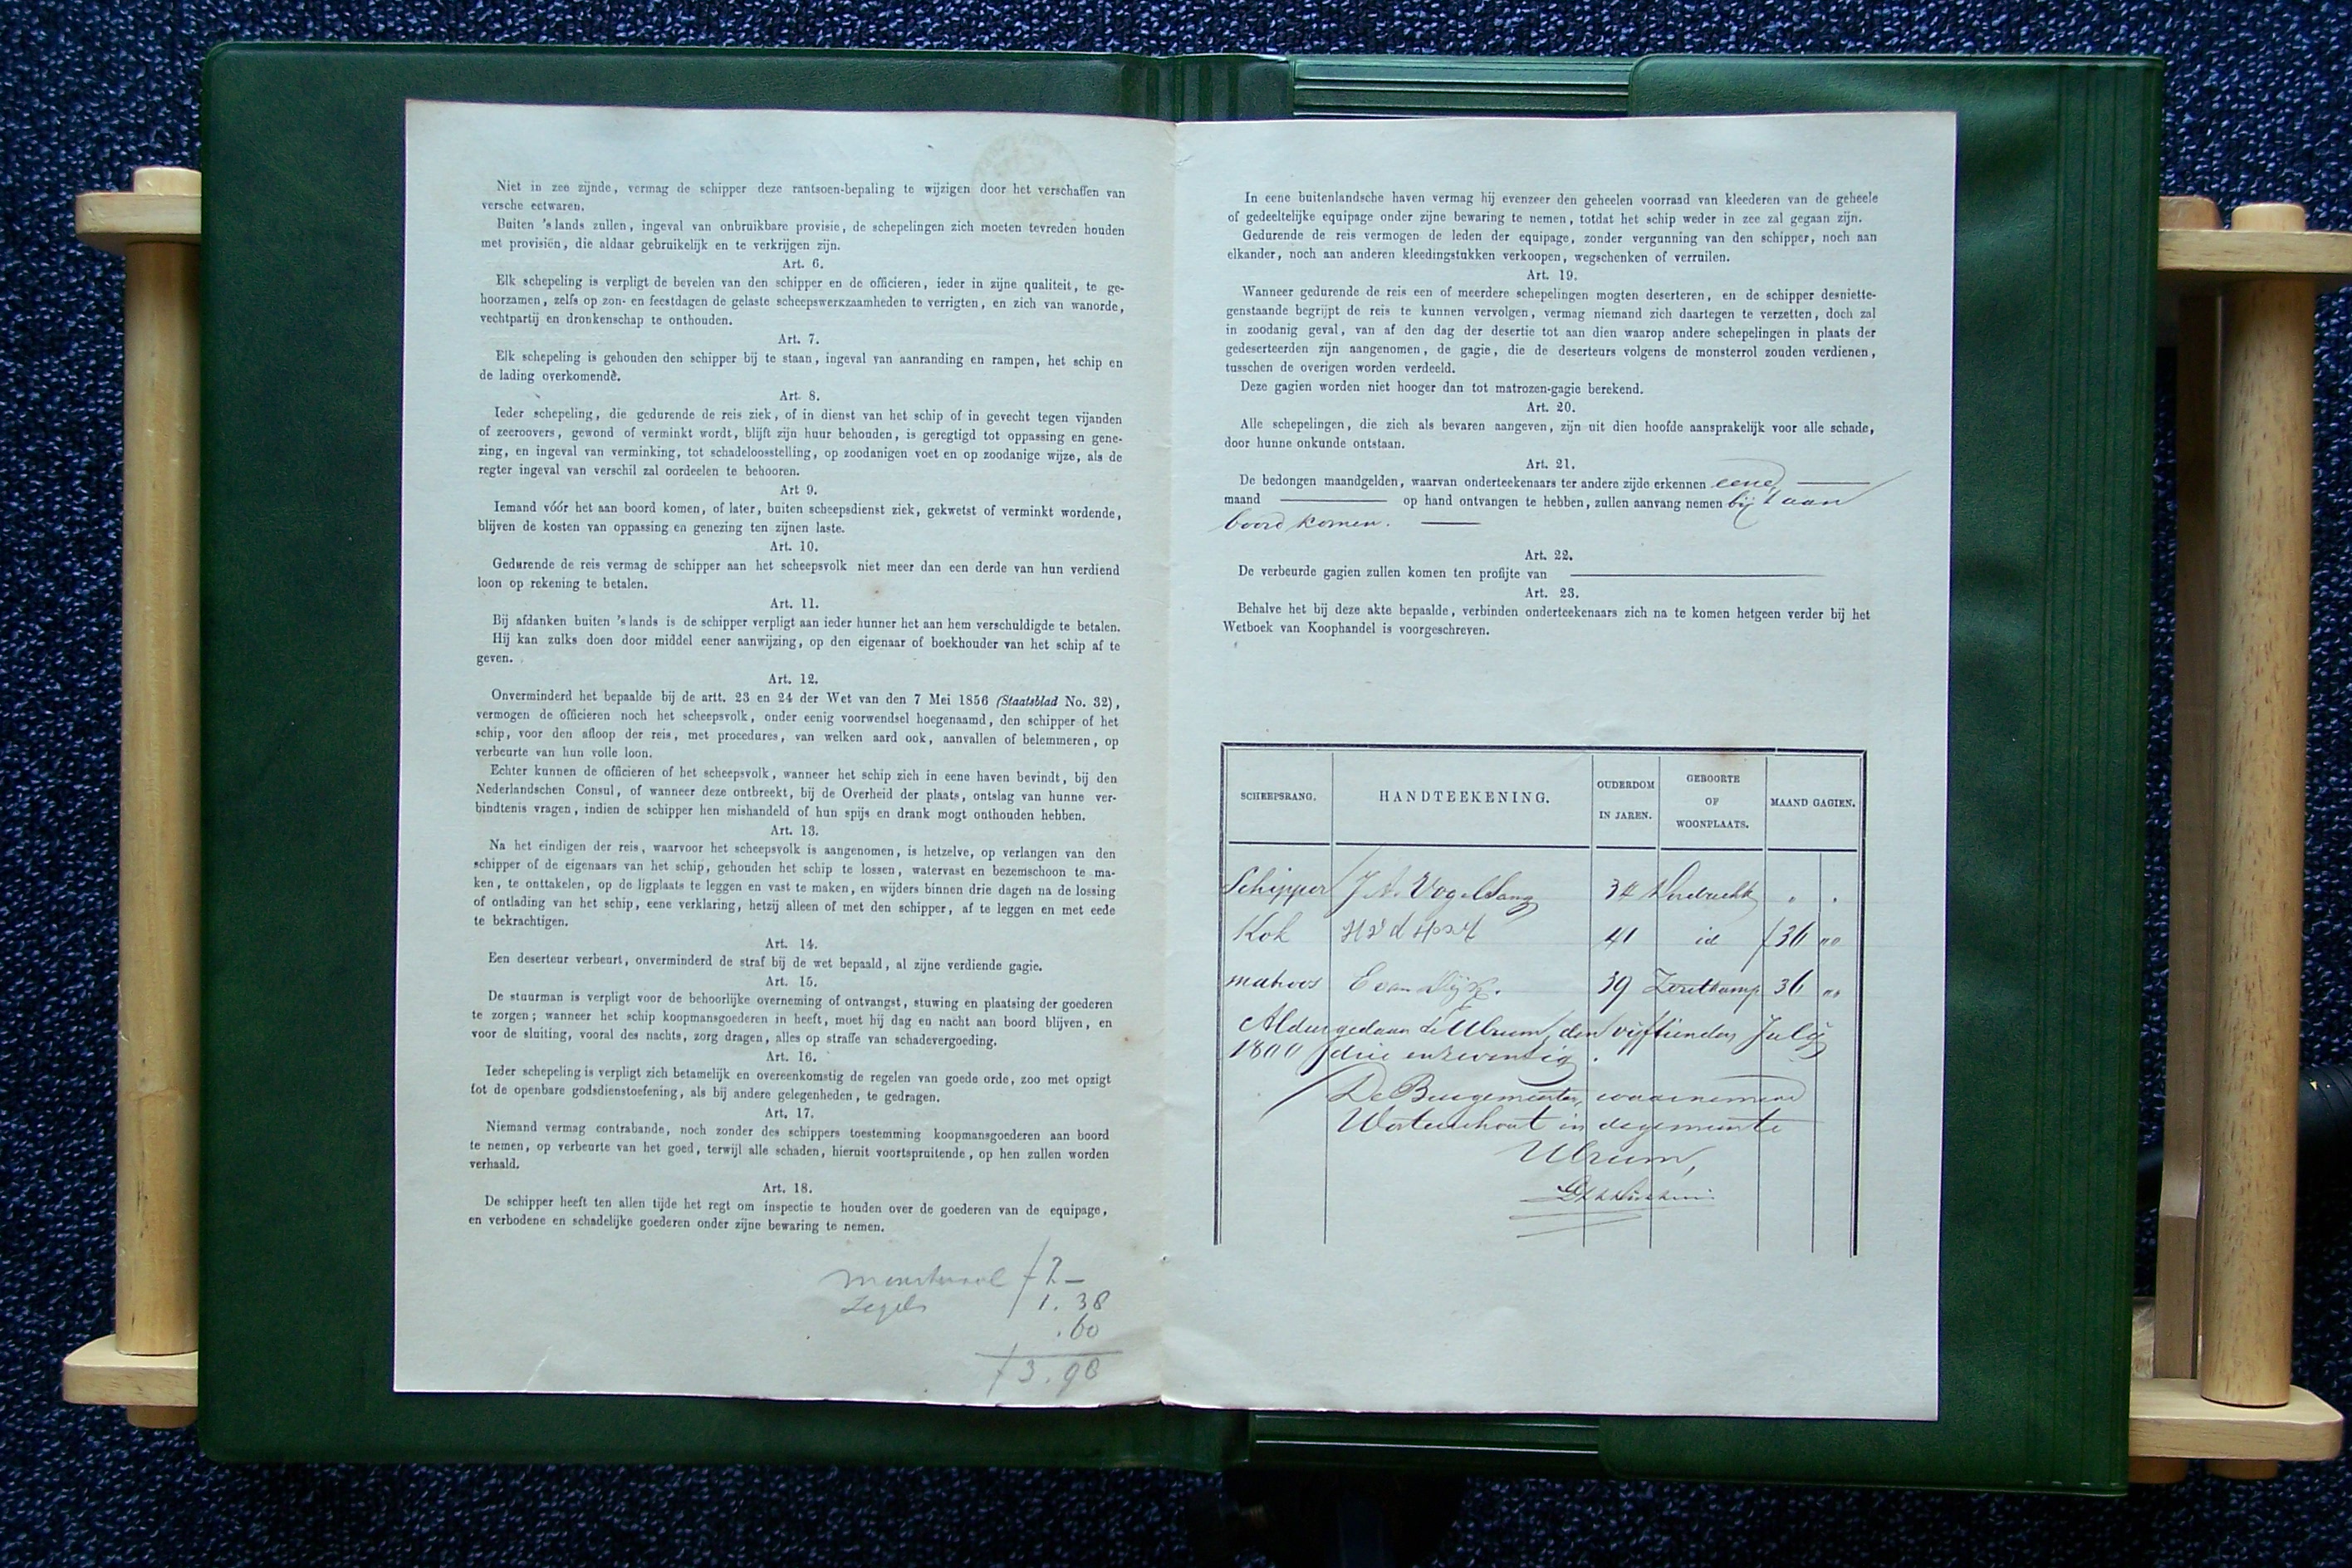 Niet in zee zijnde, vermag de schipper deze rantsoen-bepaling te wijzigen door het verschaffen van
versche eetwaren.
Buiten 's lands zullen, ingeval van onbruikbare provisie, de schepelingen zich moeten tevreden houden
met provisiën, die aldaar gebruikelijk en te verkrijgen zijn.
Art. 6.
Elk schepeling is verpligt de bevelen van den schipper en de officieren, ieder in zijne qualiteit, te ge-
hoorzamen, zelfs op zon- en feestdagen de gelaste scheepswerkzaamheden te verrigten, en zich van wanorde,
vechtpartij en dronkenschap te onthouden.
Art. 7.
Elk schepeling is gehouden den schipper bij te staan, ingeval van aanranding en rampen, het schip en
de lading overkomende.
Art. 8.
Ieder schepeling, die gedurende de reis ziek, of in dienst van het schip of in gevecht tegen vijanden
of zeeroovers, gewond of verminkt wordt, blijft zijn huur behouden, is geregtigd tot oppassing en gene-
zing, en ingeval van verminking, tot schadeloosstelling, op zoodanigen voet en op zoodanige wijze, als de
regter ingeval van verschil zal oordeelen te behooren.
Art 9.
Iemand vóór het aan boord komen, of later, buiten scheepsdienst ziek, gekwetst of verminkt wordende,
blijven de kosten van oppassing en genezing ten zijnen laste.
Art. 10.
Gedurende de reis vermag de schipper aan het scheepsvolk niet meer dan een derde van hun verdiend
loon op rekening te betalen.
Art. 11.
Bij afdanken buiten 's lands is de schipper verpligt aan ieder hunner het aan hem verschuldigde te betalen.
Hij kan zulks doen door middel eener aanwijzing, op den eigenaar of boekhouder van het schip af te
geven.
Art. 12.
Onverminderd het bepaalde bij de artt. 23 en 24 der Wet van den 7 Mei 1856 (Staatsblad No. 32),
vermogen de officieren noch het scheepsvolk, onder eenig voorwendsel hoegenaamd, den schipper of het
schip, voor den afloop der reis, met procedures, van welken aard ook, aanvallen of belemmeren, op
verbeurte van hun volle loon.
Echter kunnen de officieren of het scheepsvolk, wanneer het schip zich in eene haven bevindt, bij den
Nederlandschen Consul, of wanneer deze ontbreekt, bij de Overheid der plaats, ontslag van hunne ver-
bindtenis vragen, indien de schipper hen mishandeld of hun spijs en drank mogt onthouden hebben.
Art. 13.
Na het eindigen der reis, waarvoor het scheepsvolk is aangenomen, is hetzelve, op verlangen van den
schipper of de eigenaars van het schip, gehouden het schip te lossen, watervast en bezemschoon te ma-
ken, te onttakelen, op de ligplaats te leggen en vast te maken, en wijders binnen drie dagen na de lossing
of ontlading van het schip, eene verklaring, hetzij alleen of met den schipper, af te leggen en met eede
te bekrachtigen.
Art. 14.
Een deserteur verbeurt, onverminderd de straf bij de wet bepaald, al zijne verdiende gagie.
Art. 15.
De stuurman is verpligt voor de behoorlijke overneming of ontvangst, stuwing en plaatsing der goederen
te zorgen; wanneer het schip koopmansgoederen in heeft, moet hij dag en nacht aan boord blijven, en
voor de sluiting, vooral des nachts, zorg dragen, alles op straffe van schadevergoeding.
Art. 16.
Ieder schepeling is verpligt zich betamelijk en overeenkomstig de regelen van goede orde, zoo met opzigt
tot de openbare godsdienstoefening, als bij andere gelegenheden, te gedragen.
Art. 17.
Niemand vermag contrabande, noch zonder des schippers toestemming koopmansgoederen aan boord
te nemen, op verbeurte van het goed, terwijl alle schaden, hieruit voortspruitende, op hen zullen worden
verhaald.
Art. 18.
De schipper heeft ten allen tijde het regt om inspectie te houden over de goederen van de equipage,
en verbodene en schadelijke goederen onder zijne bewaring te nemen.
monsterrol f 2 –
zegels 1. 38
. 60
f 3. 98
In eene buitenlandsche haven vermag hij evenzeer den geheelen voorraad van kleederen van de geheele
of gedeeltelijke equipage onder zijne bewaring te nemen, totdat het schip weder in zee zal gegaan zijn.
Gedurende de reis vermogen de leden der equipage, zonder vergunning van den schipper, noch aan
elkander, noch aan anderen kleedingstukken verkoopen, wegschenken of verruilen.
Art. 19.
Wanneer gedurende de reis een of meerdere schepelingen mogten deserteren, en de schipper desniette-
genstaande begrijpt de reis te kunnen vervolgen, vermag niemand zich daartegen te verzetten, doch zal
in zoodanig geval, van af den dag der desertie tot aan dien waarop andere schepelingen in plaats der
gedeserteerden zijn aangenomen, de gagie, die de deserteurs volgens de monsterrol zouden verdienen,
tusschen de overigen worden verdeeld.
Deze gagien worden niet hooger dan tot matrozen-gagie berekend.
Art. 20.
Alle schepelingen, die zich als bevaren aangeven, zijn uit dien hoofde aansprakelijk voor alle schade,
door hunne onkunde ontstaan.
Art. 21.
De bedongen maandgelden, waarvan onderteekenaars ter andere zijde erkennen eene
maand op hand ontvangen te hebben, zullen aanvang nemen bij 't aan
boord komen.
Art. 22.
De verbeurde gagien zullen komen ten profijte van
Art. 23.
Behalve het bij deze akte bepaalde, verbinden onderteekenaars zich na te komen hetgeen verder bij het
Wetboek van Koophandel is voorgeschreven.
SCHEEPSRANG. HANDTEEKENING. OUDERDOM IN JAREN. GEBOORTE OF WOONPLAATS. MAAND GAGIEN.
Schipper J A Vogelsang 34 Dordrecht " "
Kok 41 id f 36 ""
matroos E van Dijk. 39 Zoutkamp 36 ""
Aldus gedaan te Ulrum, den vijftienden Julij
1800 drie en zeventig.
De Burgemeester, waarnemend
Waterschout in de gemeente
Ulrum,